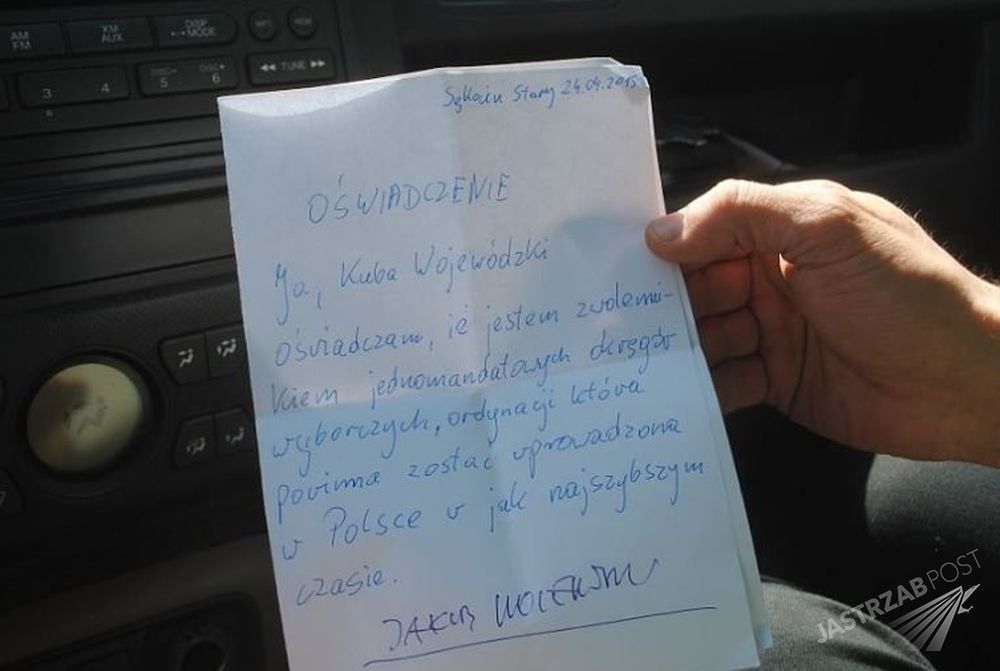 AM
FM
XM
AUX
DISP
MODE
3 4
5 6
TUNE
Stary 24.04.2015
OŚWIADCZENIE
Ja, Kuba Wojewódzki
oświadczam, że jestem zwolenni-
kiem jednomandatowych okręgów
wyborczych, ordynacji która
powinna zostać wprowadzona
w Polsce w jak najszybszym
czasie.
JAKUB
JASTRZĄBPOST